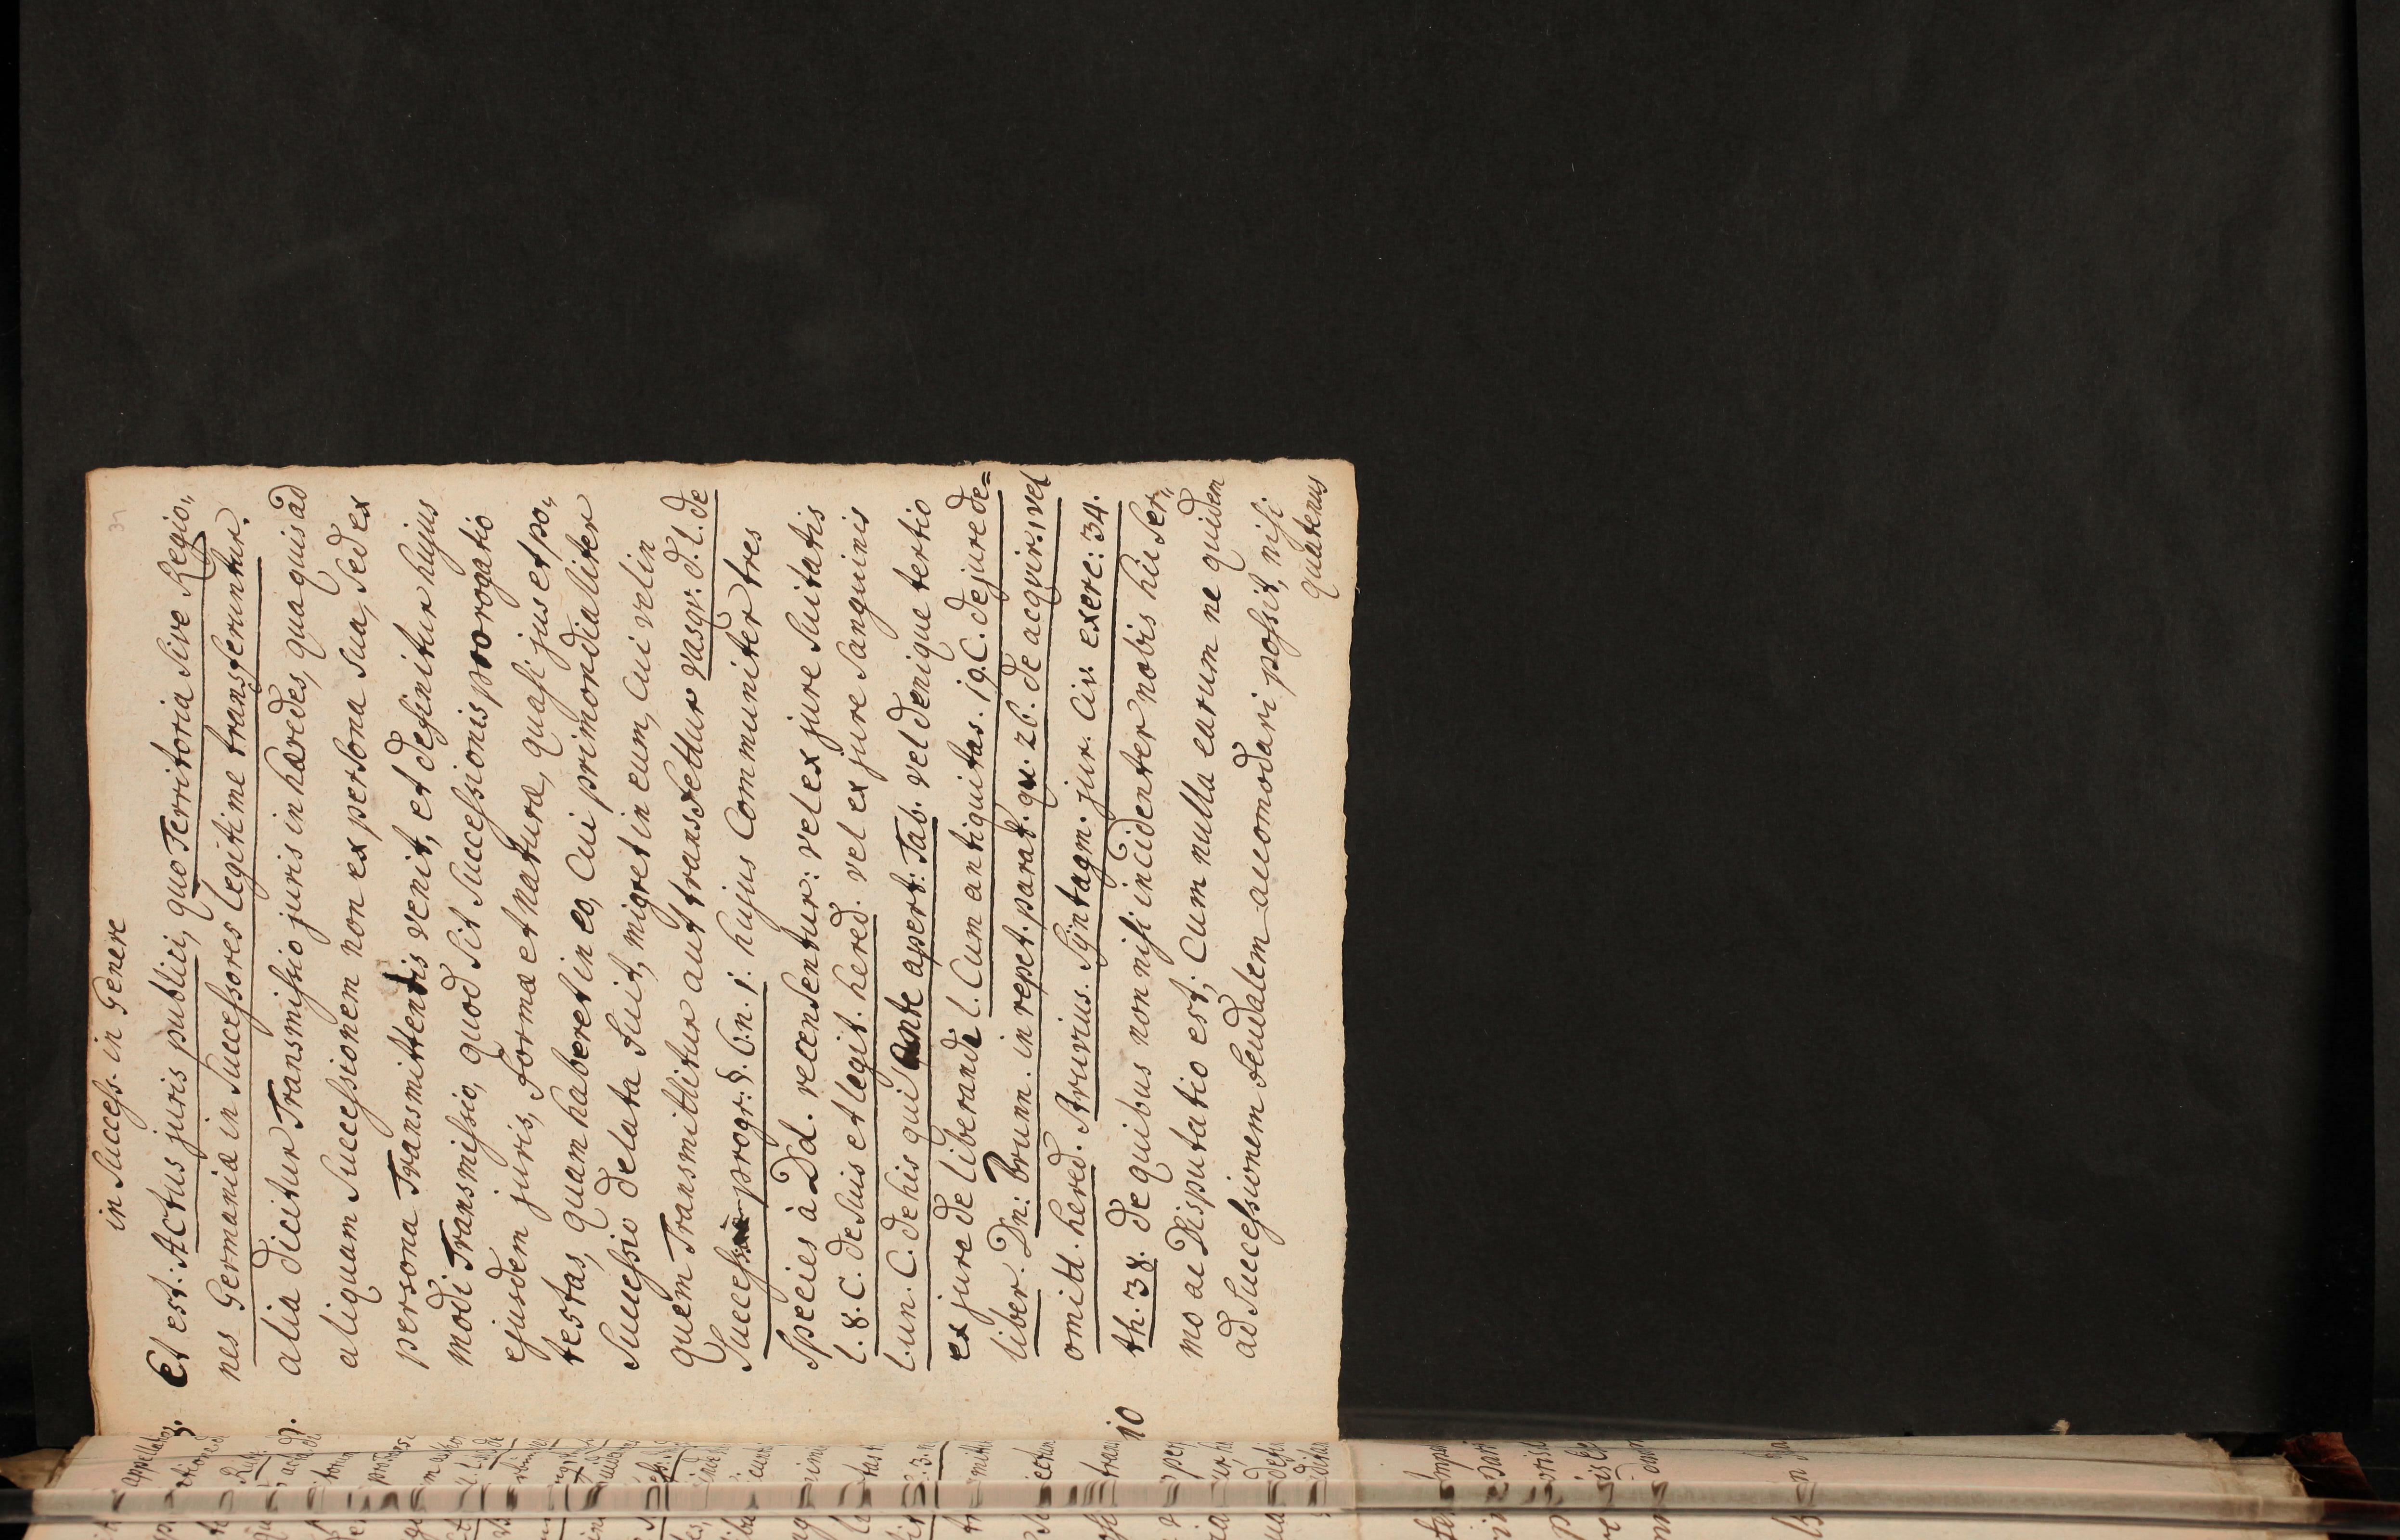 in Success. in Genere
31
Et est: Actus juris publici, quo Territoria sive Regio„
nes Germaniæ in Successores legitime transferuntur.
9. alia dicitur Transmissio juris in hæredes, qua quis ad
aliquam Successionem non ex persona sua, sed ex
persona Transmittentis venit, et definitur hujus
modi Transmissio, quod sit Successionis prorogatio
ejusdem juris, formæ et naturæ, quasi jus et po„
testas, quam haberet in eo, cui primordialiter
Successio delata fuit, migret in eum, cui vel in
quem Transmittitur aut transfertur Vasqv: d. l. de
Success. progr: §. 6. n. 1. hujus Communiter tres
Species à Dd. recensentur: vel ex jure Suitatis
l. 8. C. de Suis et legit. hered. vel ex jure Sanguinis
l. un. C. de his qui ante apert: Tab. vel denique tertio
ex jure deliberandi l. Cum antiquitas. 19. C. de jure de=
liber. Dn: Brunn. in repet. parat. qu. 26. de acqvir: vel
omitt. hered. Struvius. Syntagm. jur. Civ. exerc: 34.
th. 38. de quibus non nisi incidenter nobis hic Ser„
10 mo ac Disputatio est; Cum nulla earum ne quidem
ad Successionem feudalem accomodari possit, nisi
quatenus